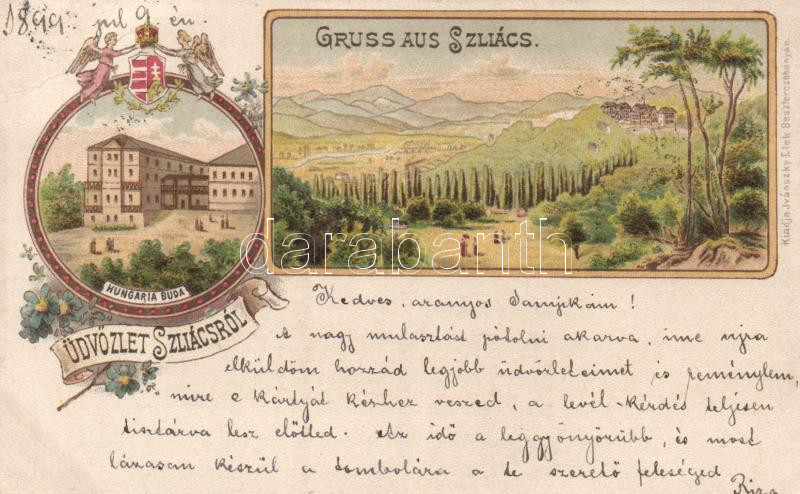 1899 jul 9 én
GRUSS AUS SZLIÁCS.
HUNGARIA BUDA
ÜDVÖZLET SZLIÁCSRÓL
Kiadja Ivánszky Elek Beszterczebányán.
darabanth.com
Kedves, aranyos Samukám!
A nagy mulasztást pótolni akarva, ime ujra
elküldöm hozzád legjobb üdvözleteimet és reménylem,
mire e kártyát kézhez veszed, a levél-kérdés teljesen
tisztázva lesz előtted. Az idő a leggyönyörübb, és most
lázasan készül a tombolára a te szerető feleséged
Riza